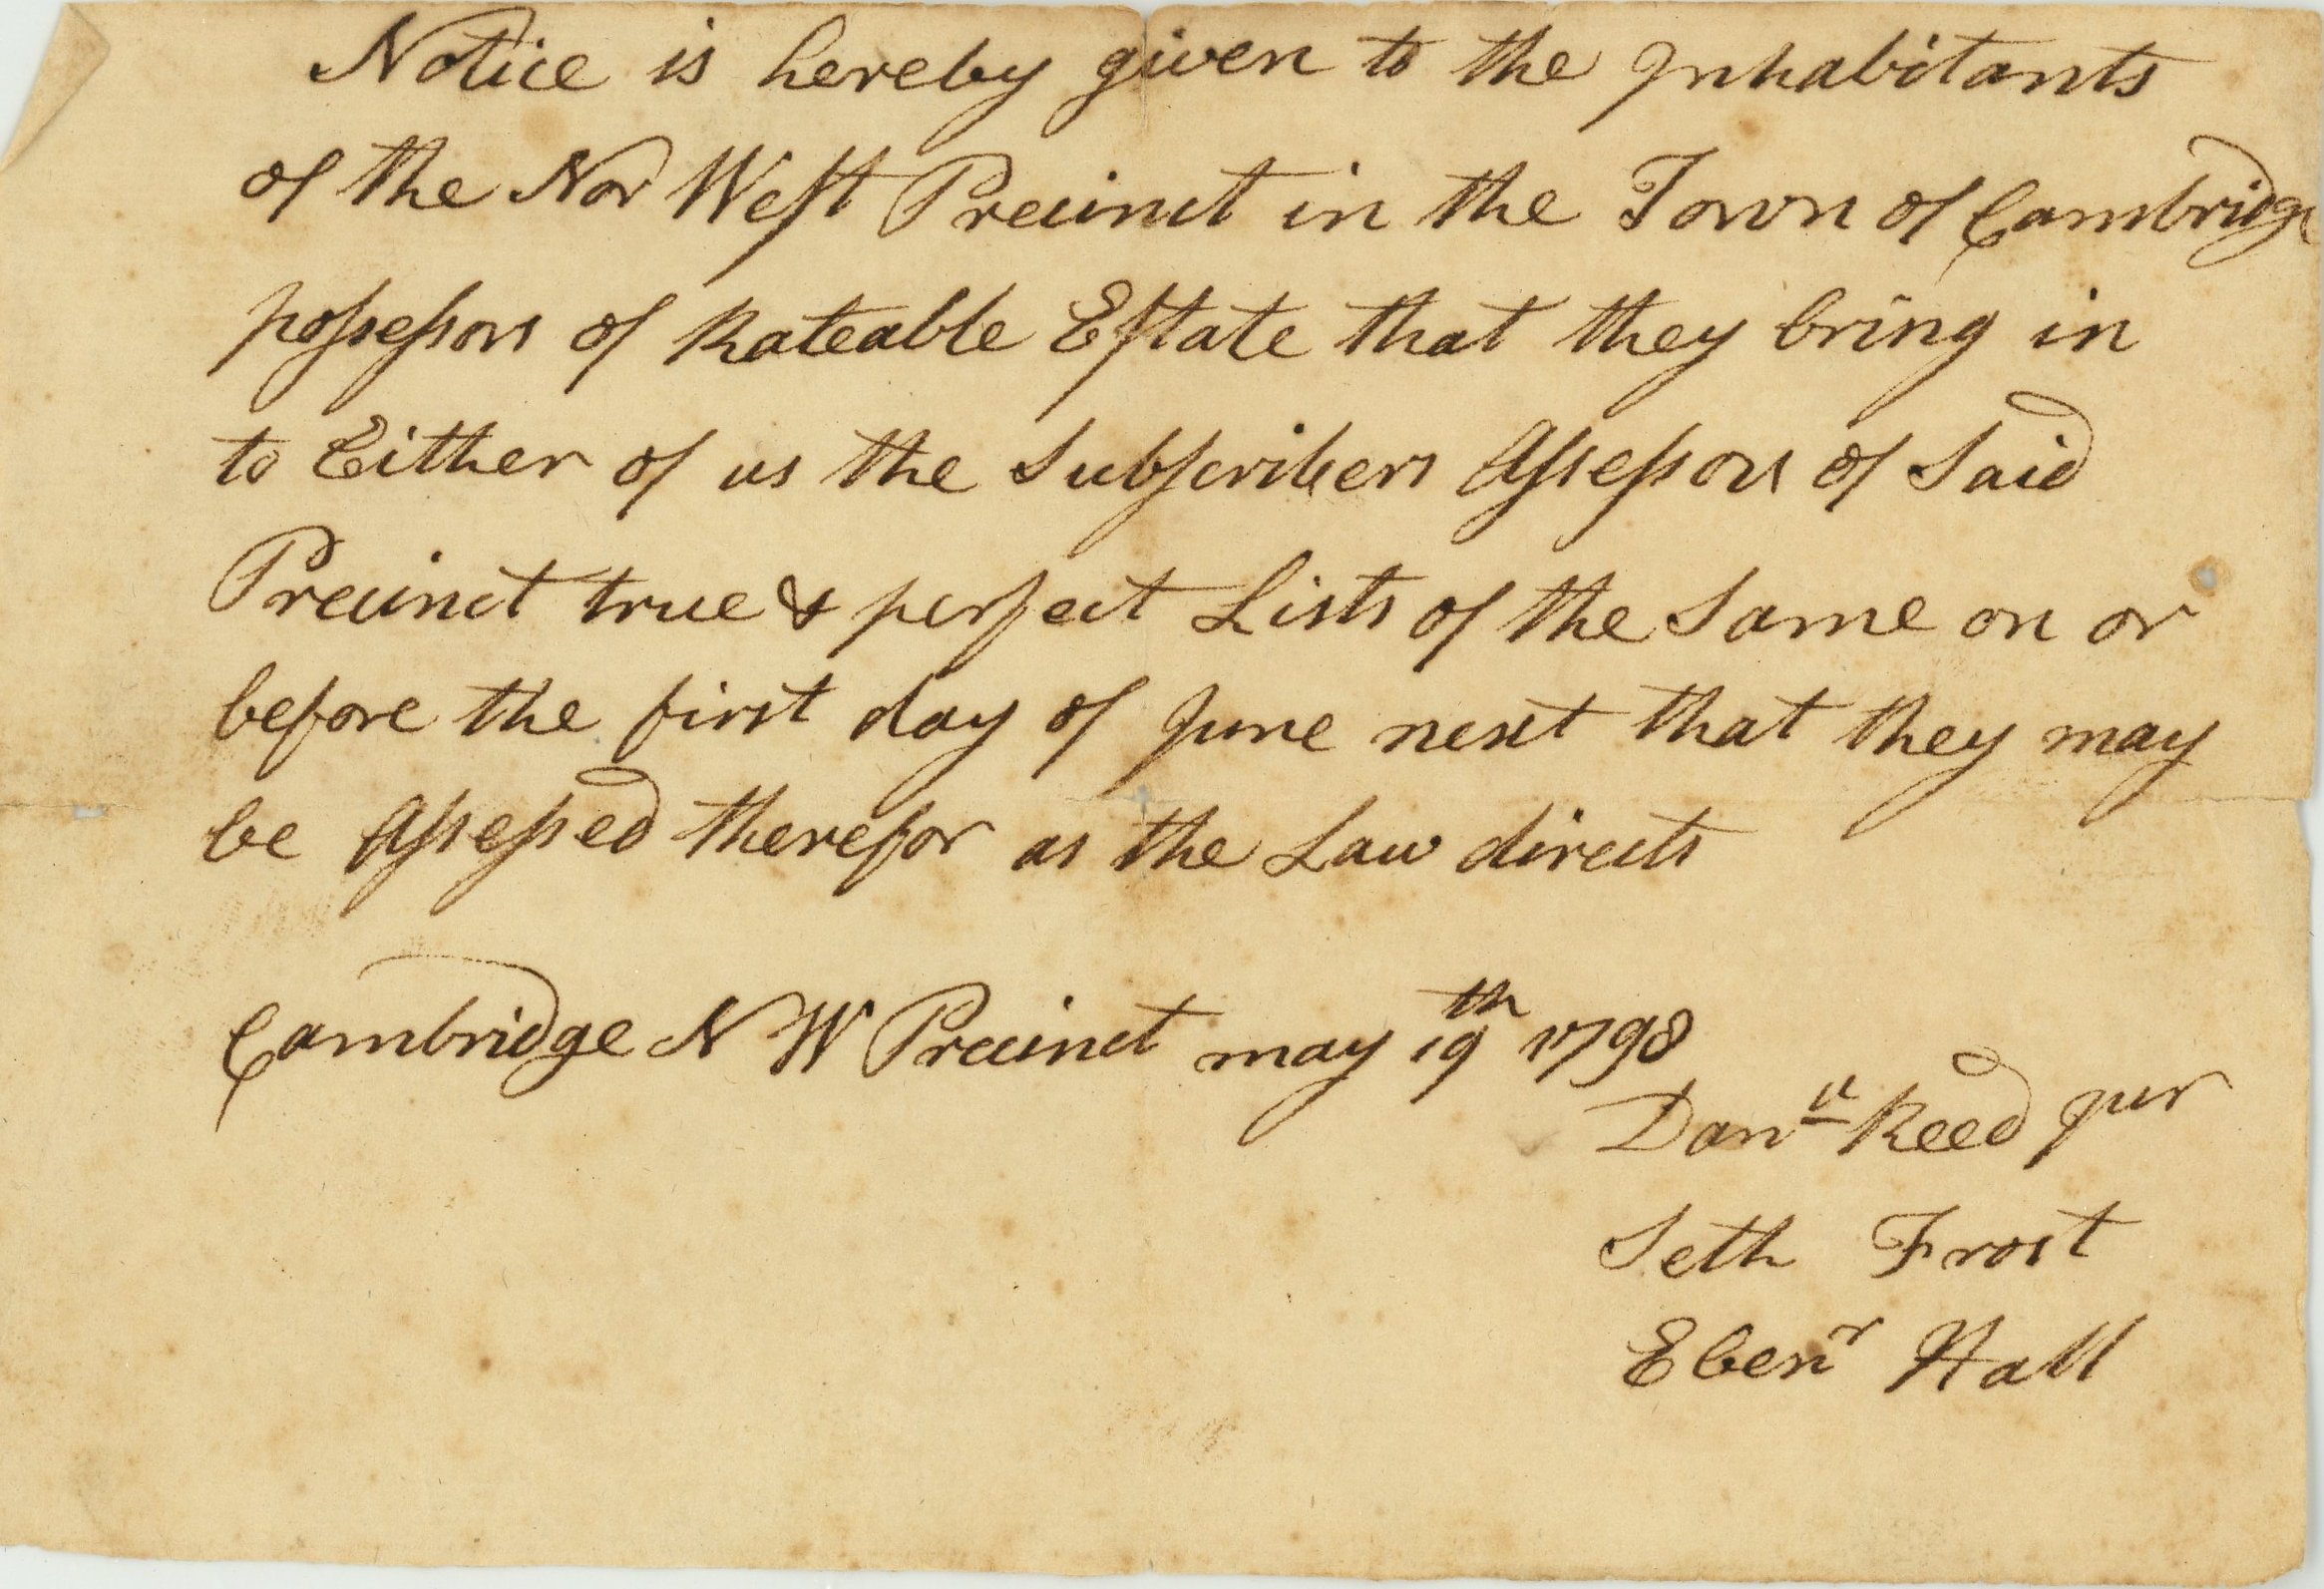 Notice is hereby given to the Inhabitants
of the Nor West Precinct in the Town of Cambridge
possessors of Rateable Estate that they bring in
to Either of us the Subscribers Assessors of Said
Precinct true & perfect Lists of the Same on or
before the first day of June next that they may
be Assessed therefor as the Law directs
Cambridge N W Precinct may 19th 1798
Danll Reed Jur
Seth Frost
Ebenr Hall